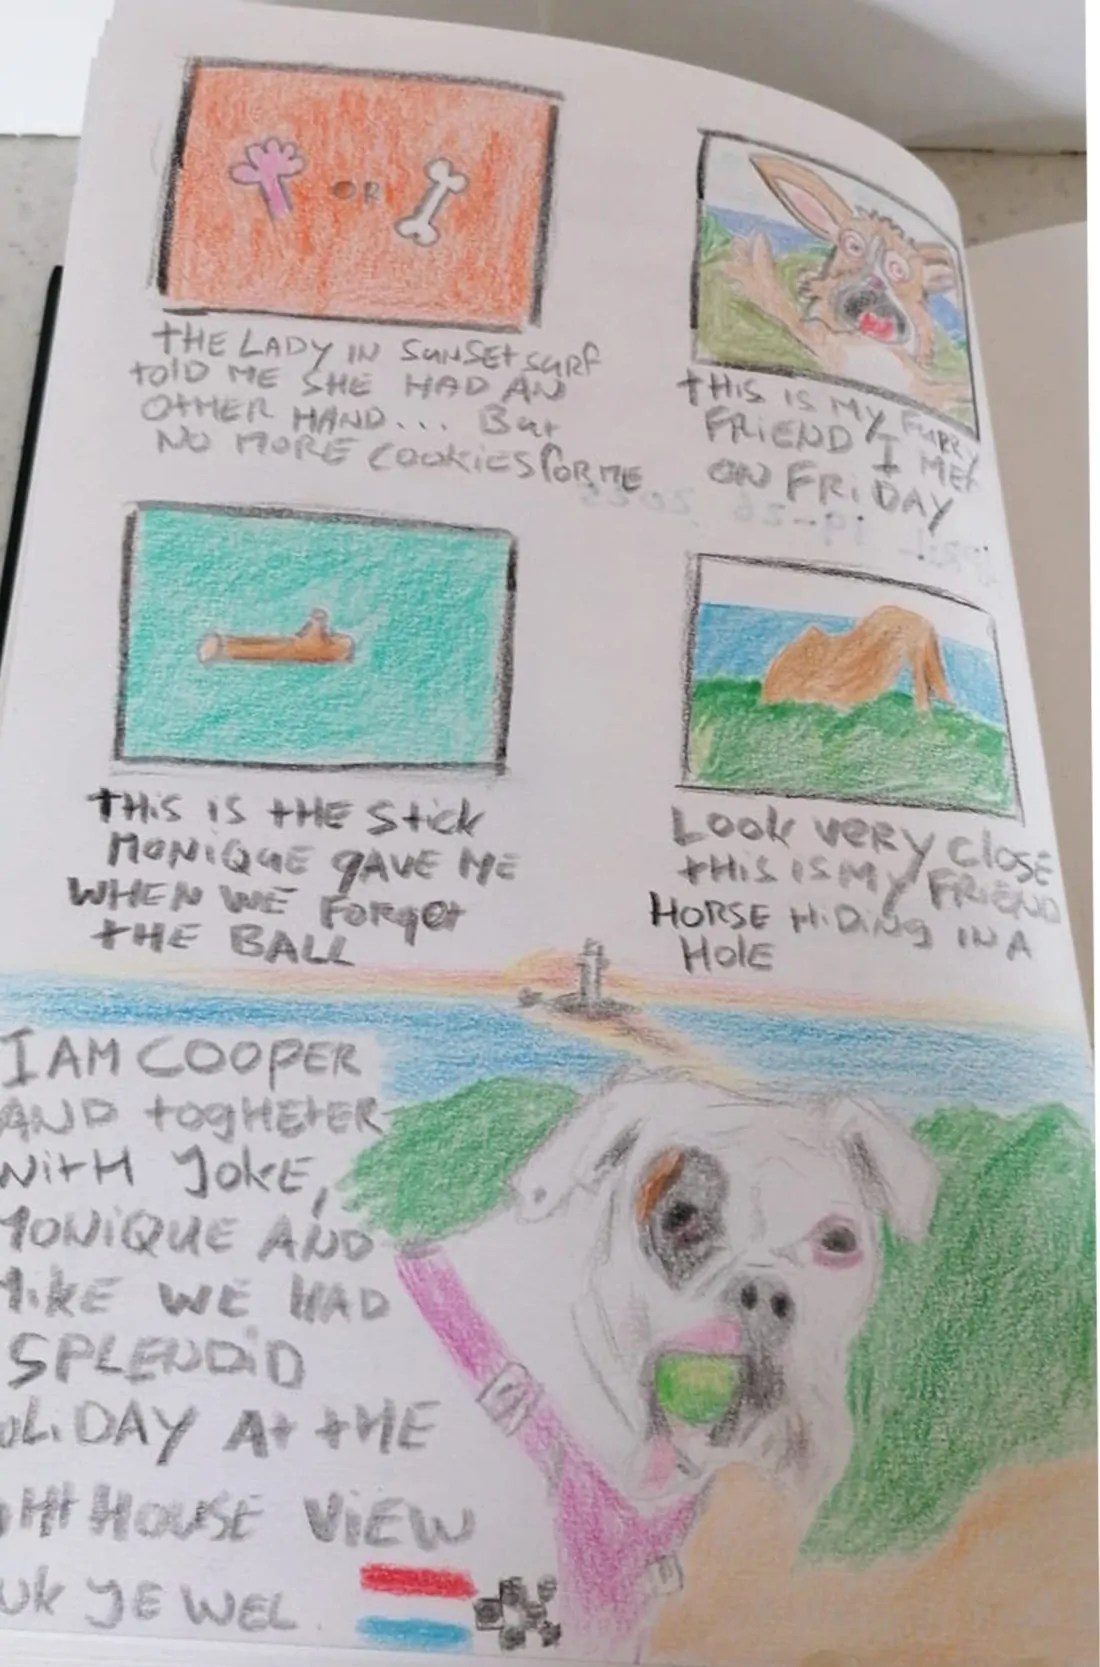 OR
THE LADY IN SUNSET SURF
TOLD ME SHE HAD AN
OTHER HAND... But
NO MORE COOKIES FOR ME
THIS IS MY FURRY
FRIEND I MET
ON FRIDAY
THIS IS THE Stick
MONIQUE GAVE ME
WHEN WE Forget
THE BALL
Look very close
THIS IS MY FRIEND
HORSE HiDiNg IN A
HOLE
I AM COOPER
AND TOGHETER
WITH JOKE,
MONIQUE AND
MIKE WE HAD
SPLENDID
OLIDAY At tHE
HOUSE VIEW
UK JE WEL